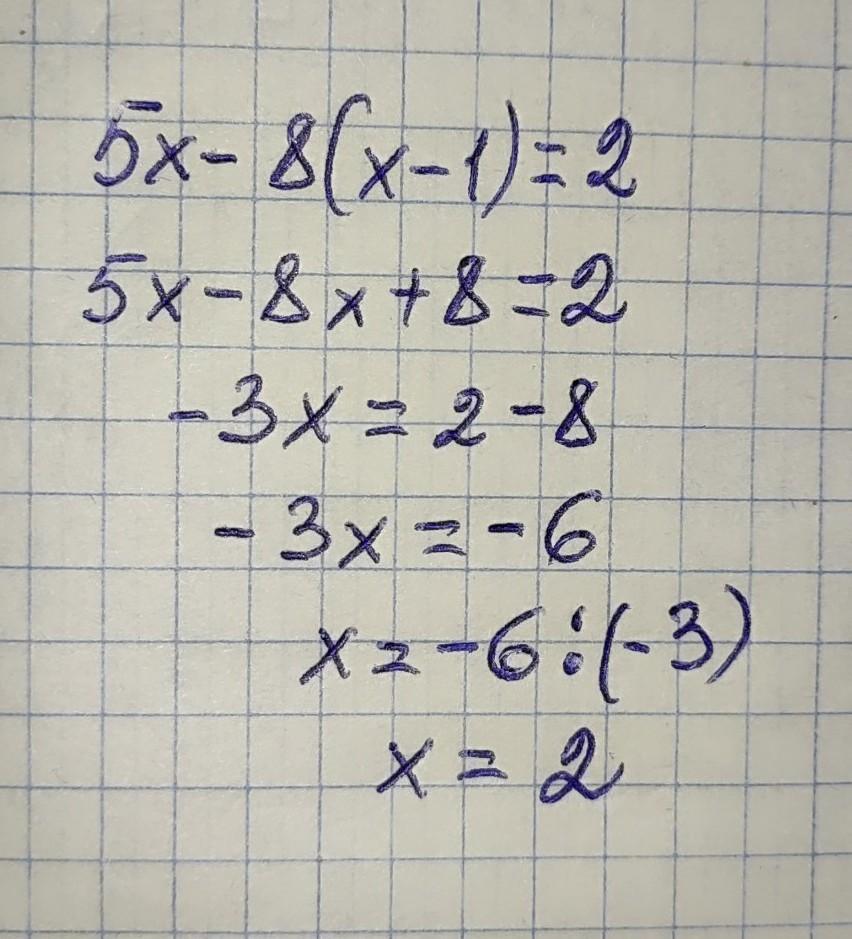 5x-8(x-1)=2
5x-8x+8=2
-3x=2-8
-3x=-6
x=-6:(-3)
x=2